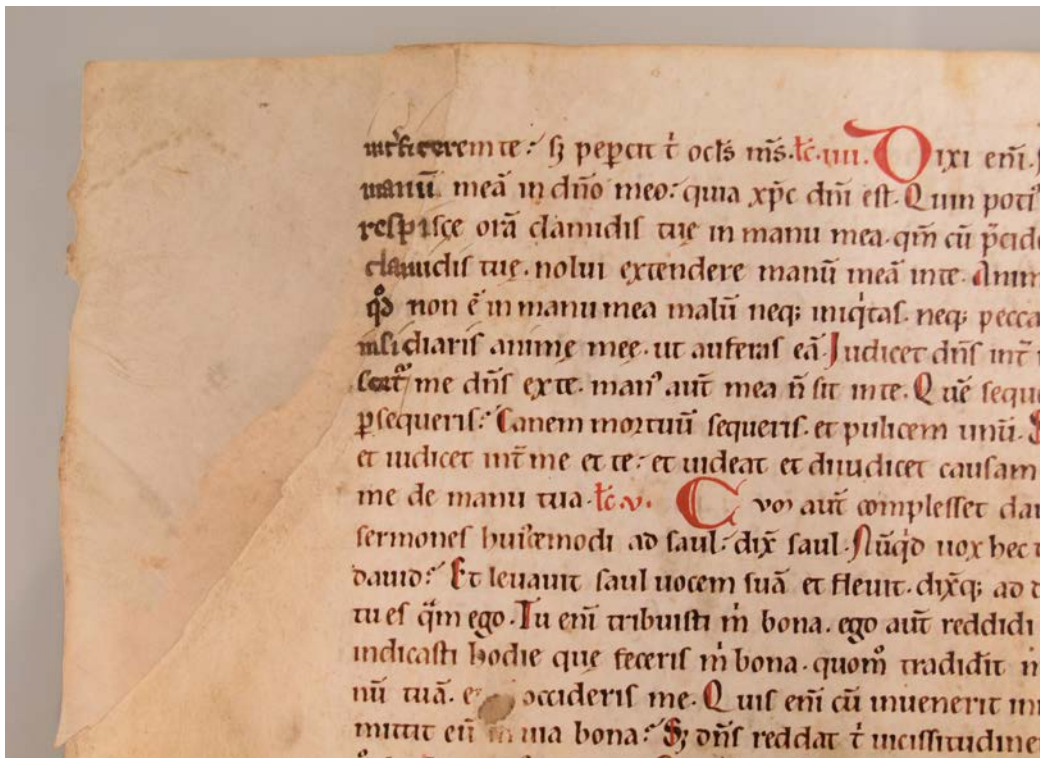 int̾ficerem te: sꝫ peꝑcit t̾ ocłs m̅s. łc. iiii. Dixi eni̅.
manu̅ mea̅ in dño meo: quia xp̅c dñi est. Quin poti᾽
respisce ora̅ clamidis tuę in manu mea. qm̅ cu̅ p̃cide
clamidis tuę. nolui extendere manu̅ mea̅ in te. Anim
qͦd non e̅ in manu mea malu̅ neqꝫ iniqͥtas. neqꝫ pecca
insidiaris animę meę. ut auferas ea̅. Iudicet dñs int̾
me dñs ex te. man᾽ aut̅ mea n̅ sit in te. Que̅ seque
ꝑsequeris: Canem mortuu̅ sequeris. et pulicem unu̅.
et iudicet int̾ me et te: et uideat et diiudicet causam
me de manu tua. łc. v. Cvm aut̅ complesset dau
sermones huiᷤcemodi ad saul: dix̅ saul. Nu̅qͥd uox hec
dauid: Et leuauit saul uocem sua̅ et fleuit. dix̅qꝫ ad
tu es q̃m ego. Tu eni̅ tribuisti m̍ bona. ego aut̅ reddidi
indicasti hodie que feceris m̍ bona. quomͦ tradidit
nu̅ tua̅. occideris me. Quis eni̅ cu̅ inuenerit
mittit eu̅ in uia bona: Sꝫ dñs reddat t̍ uicissitudine